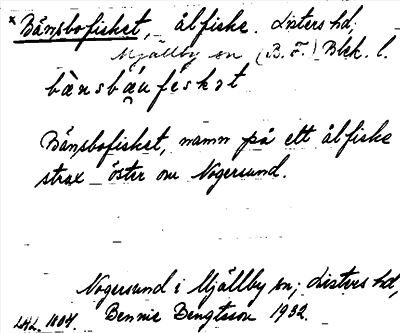 * Bånsbofisket, ålfiske. Listers hd,
Mjällby sn (B. F.) Blek. l.
bànsbǫ́ufeskət
Bånsbofisket, namn på ett ålfiske
strax öster om Nogersund.
Nogersund i Mjällby sn; Listers hd,
LAL. 1104. Bennie Bengtsson 1932.